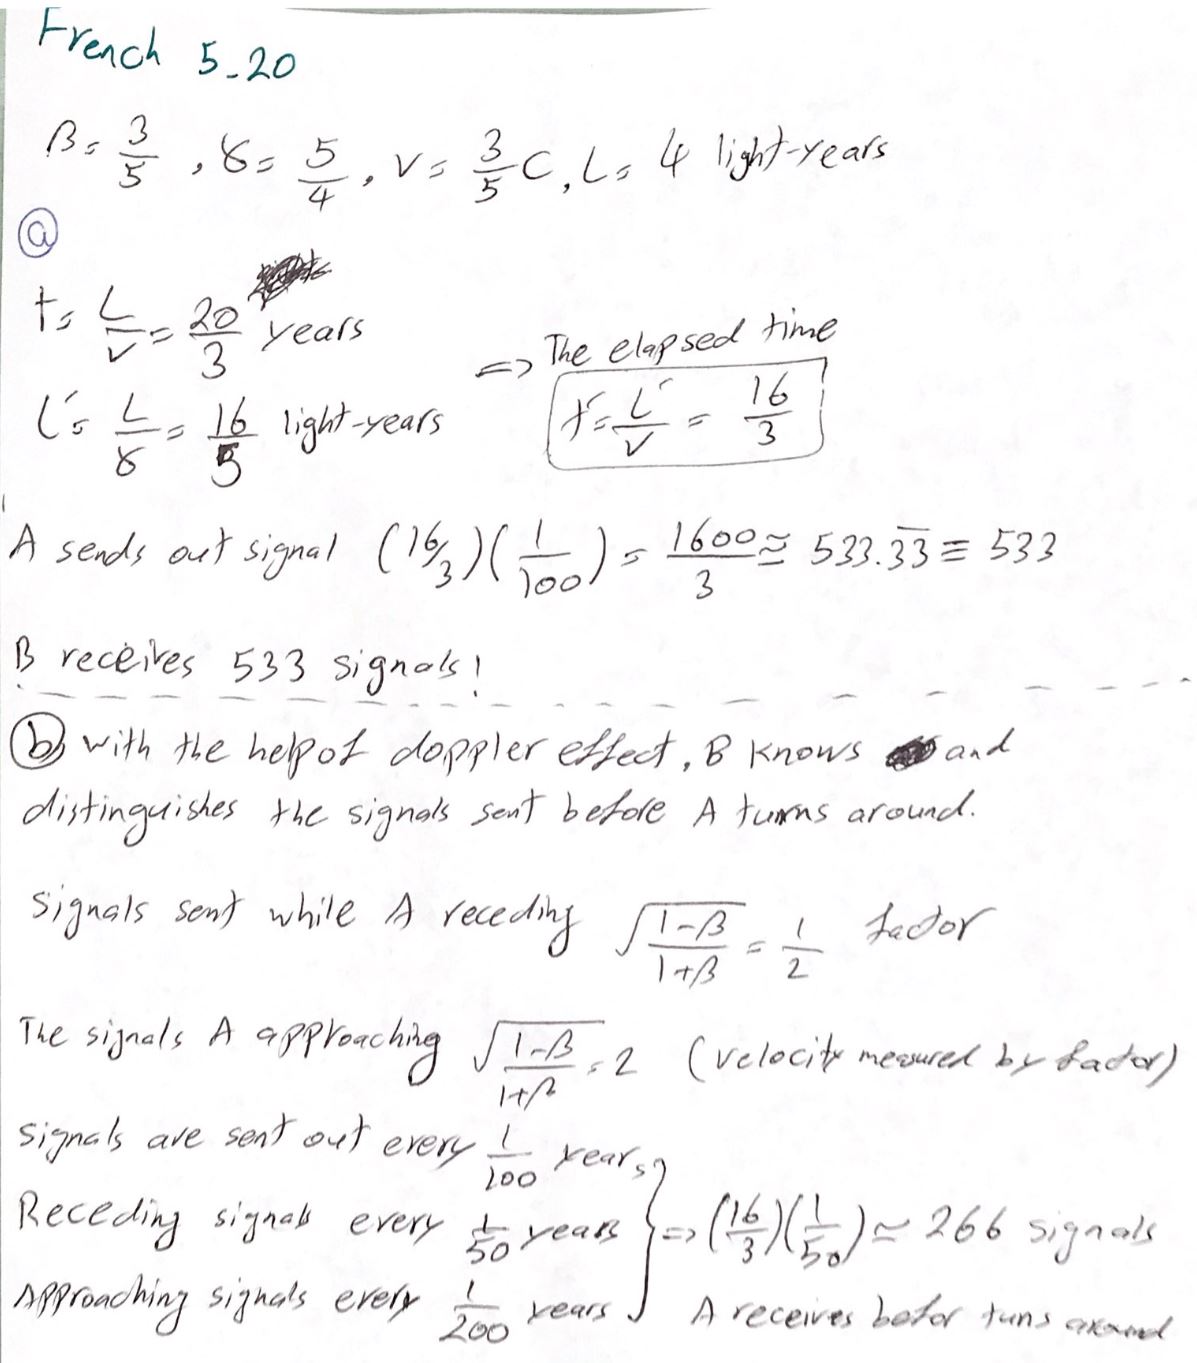 French 5-20
β = 3/5 , γ = 5/4 , v = 3/5 C , L = 4 light-years
(a)
t = L/v = 20/3 years
⇒ The elapsed time
L' = L/γ = 16/5 light-years
t' = L'/v = 16/3
A sends out signal (16/3)(1/100) = 1600/3 ≅ 533.33 ≡ 533
B receives 533 signals!
(b) with the help of doppler effect, B knows and
distinguishes the signals sent before A turns around.
signals sent while A receding √(1-β/1+β) = 1/2 factor
The signals A approaching √(1-β/1+β) = 2 (velocity measured by factor)
signals are sent out every 1/100 years
Receding signals every 1/50 years ⇒ (16/3)(1/50) ≃ 266 signals
Approaching signals every 1/200 years
A receives befor tuns around